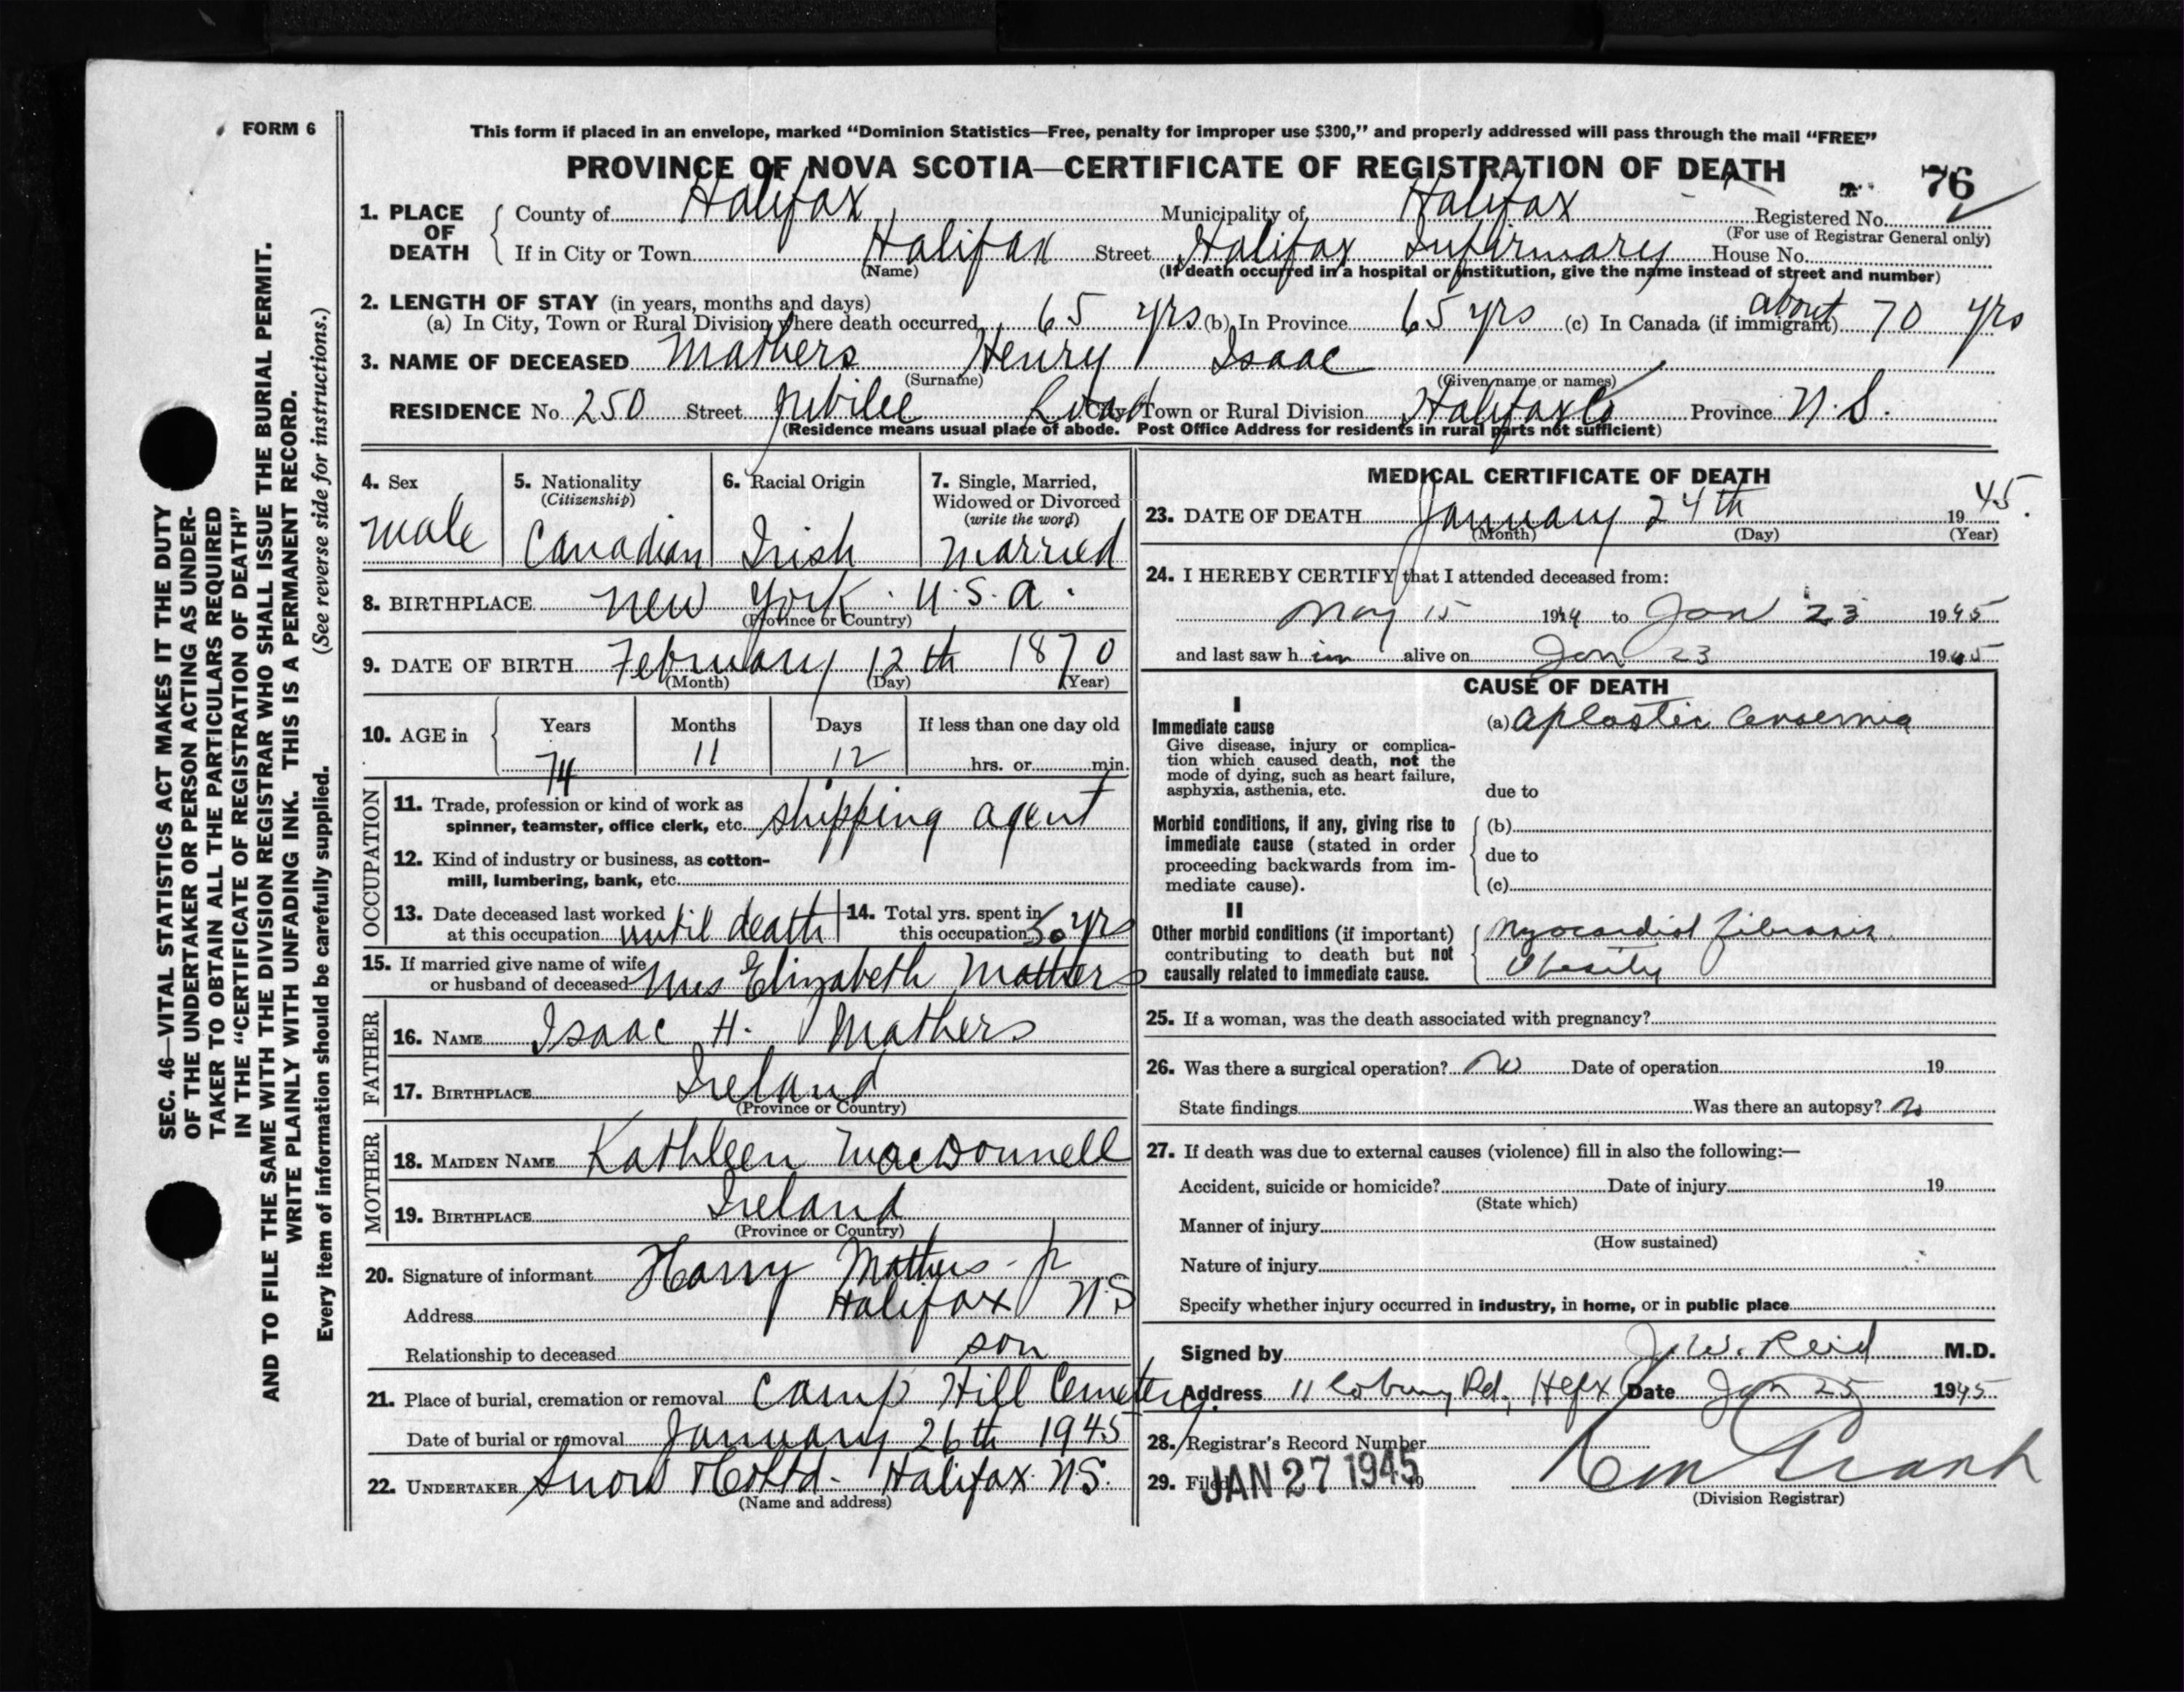 FORM 6
This form if placed in an envelope, marked “Dominion Statistics—Free, penalty for improper use $300,” and properly addressed will pass through the mail “FREE”
PROVINCE OF NOVA SCOTIA—CERTIFICATE OF REGISTRATION OF DEATH
76
1. PLACE OF DEATH
County of Halifax Municipality of Halifax Registered No.
(For use of Registrar General only)
If in City or Town Halifax Street Halifax Infirmary House No.
(Name) (If death occurred in a hospital or institution, give the name instead of street and number)
2. LENGTH OF STAY (in years, months and days)
(a) In City, Town or Rural Division where death occurred 65 yrs (b) In Province 65 yrs (c) In Canada (if immigrant) about 70 yrs
3. NAME OF DECEASED Mathers Henry Isaac
(Surname) (Given name or names)
RESIDENCE No. 250 Street Jubilee Road City, Town or Rural Division Halifax Co Province N.S.
(Residence means usual place of abode. Post Office Address for residents in rural parts not sufficient)
4. Sex
male
5. Nationality
(Citizenship)
Canadian
6. Racial Origin
Irish
7. Single, Married,
Widowed or Divorced
(write the word)
Married
8. BIRTHPLACE New York. U.S.A.
(Province or Country)
9. DATE OF BIRTH February 12th 1870
(Month) (Day) (Year)
10. AGE in
Years Months Days If less than one day old
74 11 12 hrs. or min.
OCCUPATION
11. Trade, profession or kind of work as
spinner, teamster, office clerk, etc. shipping agent
12. Kind of industry or business, as cotton-
mill, lumbering, bank, etc.
13. Date deceased last worked
at this occupation until death
14. Total yrs. spent in
this occupation 50 yrs
15. If married give name of wife
or husband of deceased Mrs Elizabeth Mathers
FATHER
16. NAME Isaac H. Mathers
17. BIRTHPLACE Ireland
(Province or Country)
MOTHER
18. MAIDEN NAME Kathleen MacDonnell
19. BIRTHPLACE Ireland
(Province or Country)
20. Signature of informant Harry Mathers Jr
Address Halifax N.S
Relationship to deceased son
21. Place of burial, cremation or removal Camp Hill Cemetery.
Date of burial or removal January 26th 1945
22. UNDERTAKER Snow & Co Ltd - Halifax N.S.
(Name and address)
MEDICAL CERTIFICATE OF DEATH
23. DATE OF DEATH January 24th 1945.
(Month) (Day) (Year)
24. I HEREBY CERTIFY that I attended deceased from:
May 15 1944 to Jan 23 1945
and last saw him alive on Jan 23 1945
CAUSE OF DEATH
I
Immediate cause
Give disease, injury or complica-
tion which caused death, not the
mode of dying, such as heart failure,
asphyxia, asthenia, etc.
(a) Aplastic Anaemia
due to
Morbid conditions, if any, giving rise to
immediate cause (stated in order
proceeding backwards from im-
mediate cause).
(b)
due to
(c)
II
Other morbid conditions (if important)
contributing to death but not
causally related to immediate cause.
Myocardial fibrosis
Obesity
25. If a woman, was the death associated with pregnancy?
26. Was there a surgical operation? No Date of operation 19
State findings Was there an autopsy? No
27. If death was due to external causes (violence) fill in also the following:—
Accident, suicide or homicide? Date of injury 19
(State which)
Manner of injury
(How sustained)
Nature of injury
Specify whether injury occurred in industry, in home, or in public place
Signed by J.W. Reid M.D.
Address 11 Coburg Rd., Hfx Date Jan 25 1945
28. Registrar's Record Number
29. Filed JAN 27 1945 19
(Division Registrar)
SEC. 46—VITAL STATISTICS ACT MAKES IT THE DUTY
OF THE UNDERTAKER OR PERSON ACTING AS UNDER-
TAKER TO OBTAIN ALL THE PARTICULARS REQUIRED
IN THE “CERTIFICATE OF REGISTRATION OF DEATH”
AND TO FILE THE SAME WITH THE DIVISION REGISTRAR WHO SHALL ISSUE THE BURIAL PERMIT.
WRITE PLAINLY WITH UNFADING INK. THIS IS A PERMANENT RECORD.
Every item of information should be carefully supplied. (See reverse side for instructions.)